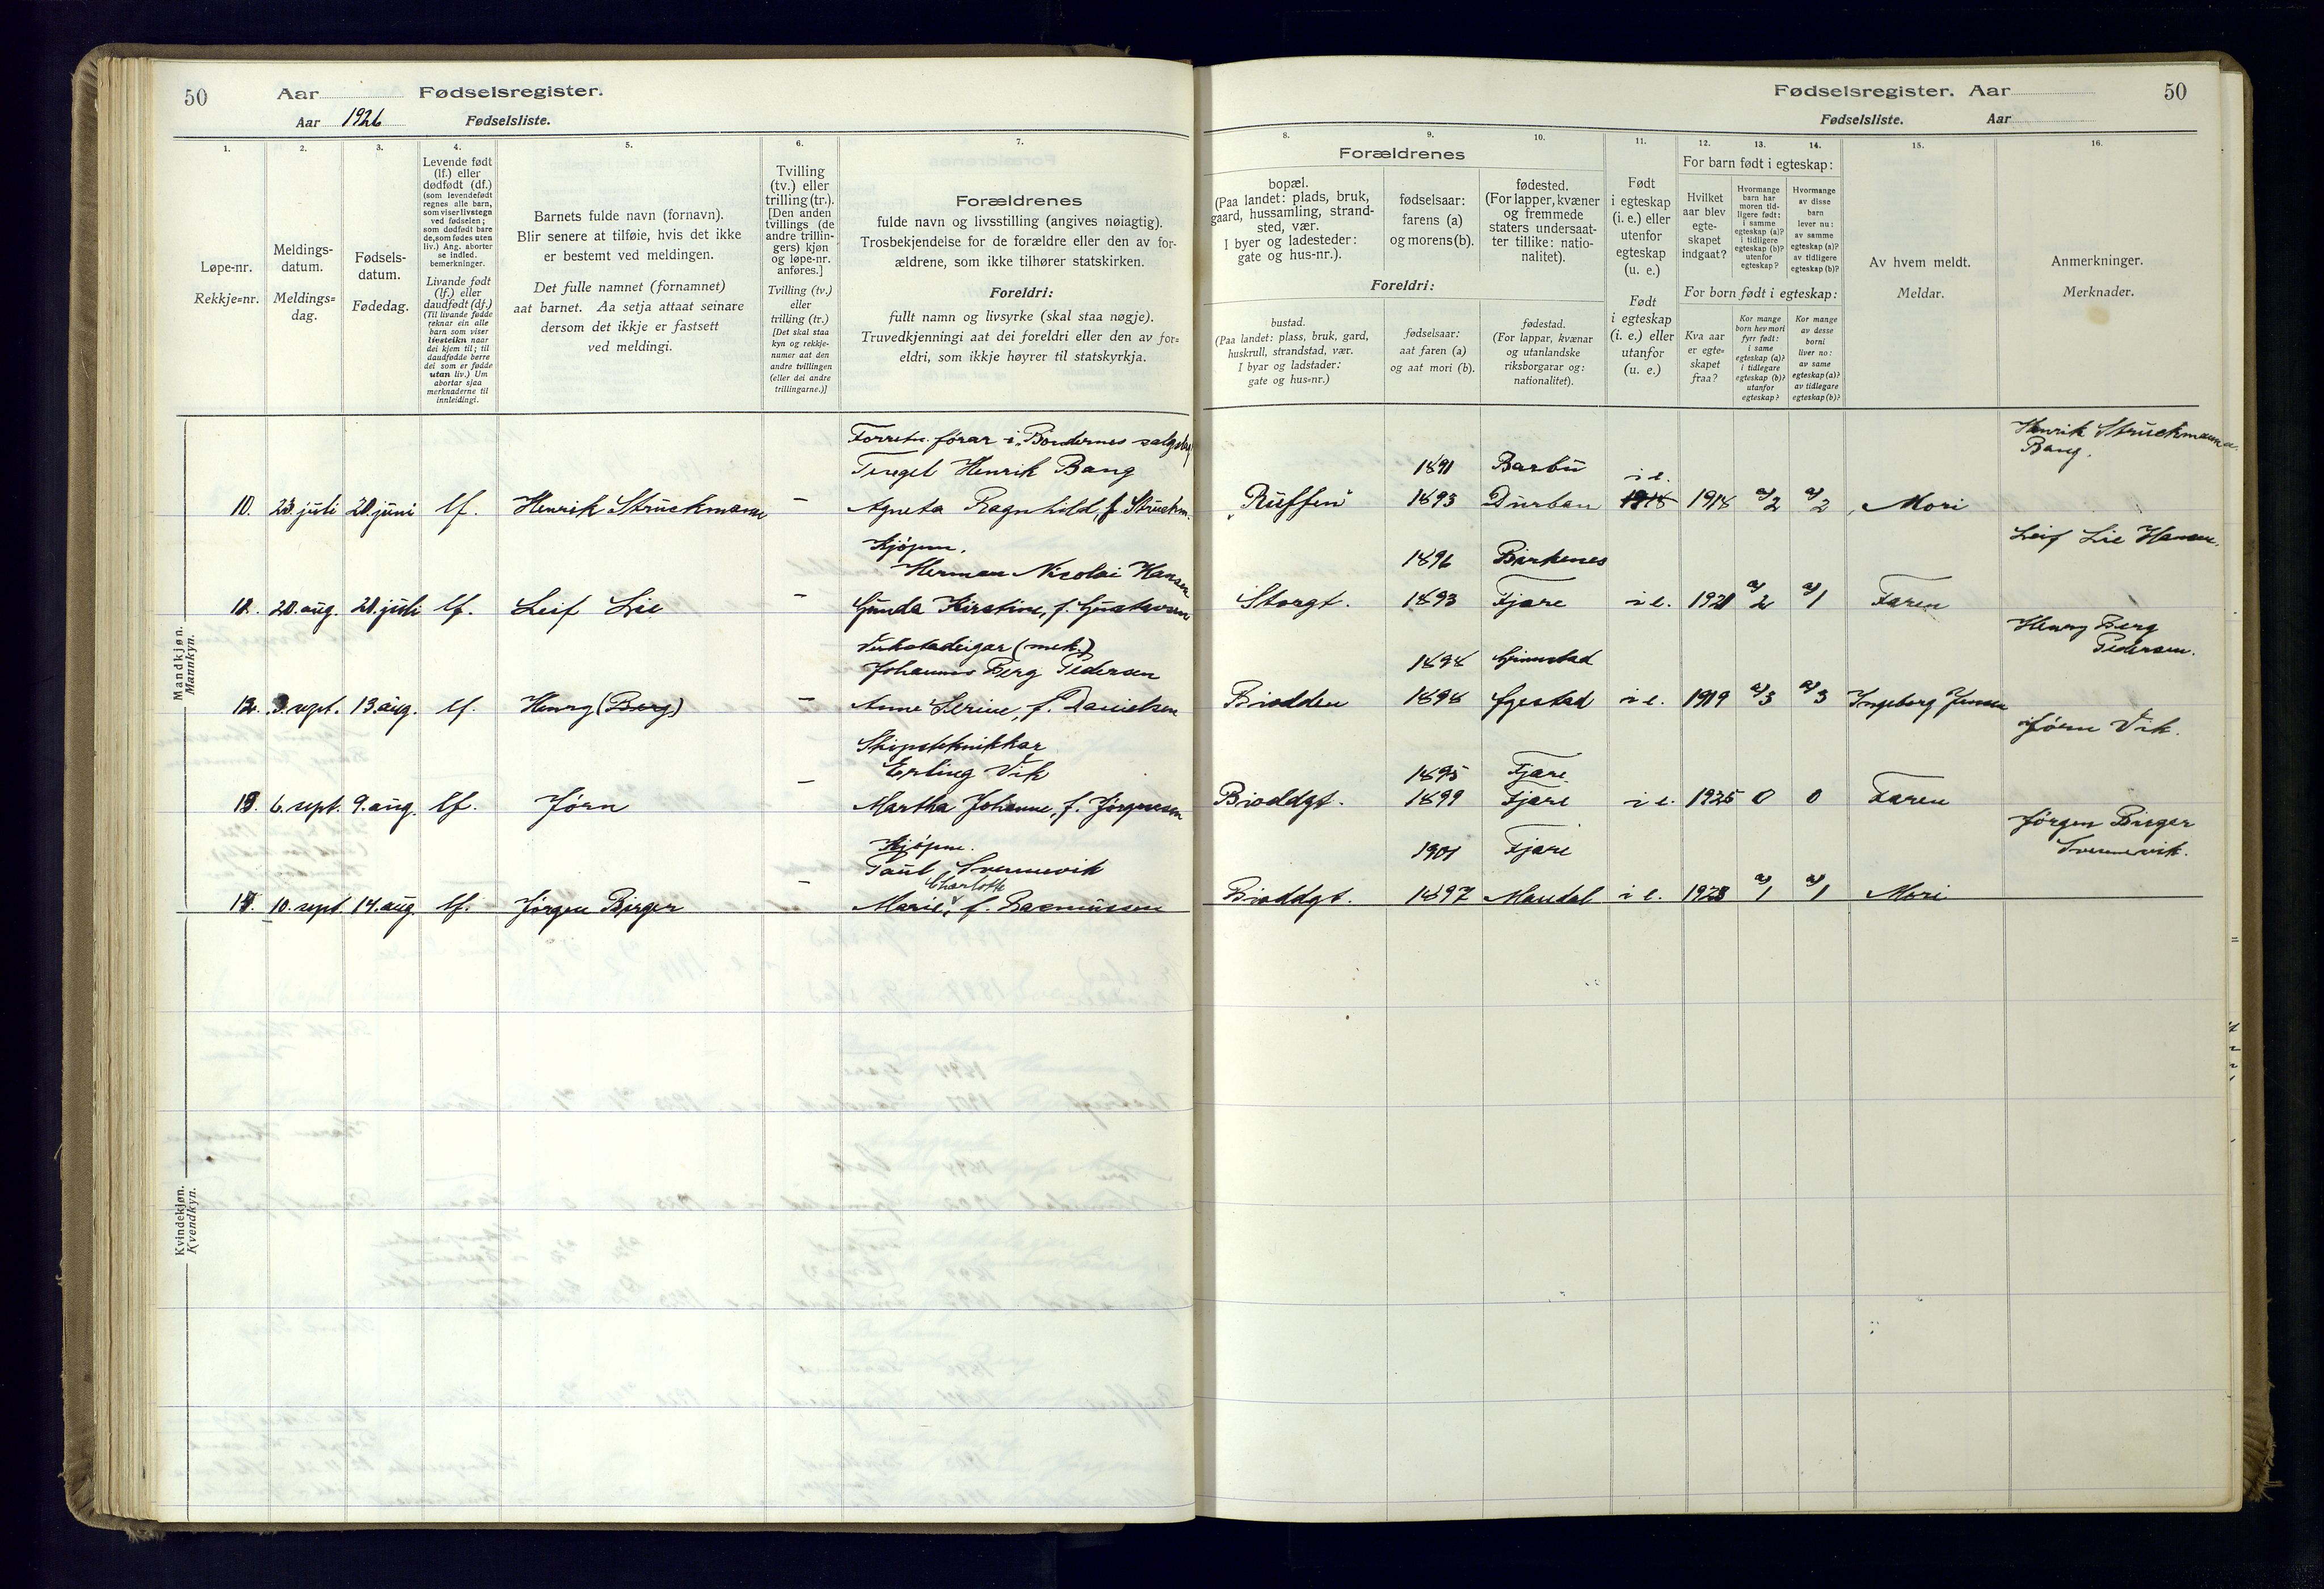 50
Aar
Fødselsregister.
Aar 1926
Fødselsliste.
1.
2.
3.
4.
5.
6.
7.
Løpe-nr.
Rekkje=nr.
Meldings-
datum.
Meldings=
dag.
Fødsels-
datum.
Fødedag.
Levende født
(lf.) eller
dødfødt (df.)
(som levendefødt
regnes alle barn,
som viser livstegn
ved fødselen;
som dødfødt bare
de, som fødes uten
liv.) Ang. aborter
se indled.
bemerkninger.
Livande født
(lf.) eller
daudfødt (df.)
(Til livande fødde
reknar ein alle
barn som viser
livsteikn naar
dei kjem til; til
daudfødde berre
dei som er fødde
utan liv.) Um
abortar sjaa
merknaderne til
innleidingi.
Barnets fulde navn (fornavn).
Blir senere at tilføie, hvis det ikke
er bestemt ved meldingen.
Det fulle namnet (fornamnet)
aat barnet. Aa setja attaat seinare
dersom det ikkje er fastsett
ved meldingi.
Tvilling
(tv.) eller
trilling (tr.).
[Den anden
tvillings (de
andre trillin-
gers) kjøn
og løpe-nr.
anføres.]
Tvilling (tv.)
eller
trilling (tr.)
[Det skal staa
kyn og rekkje-
numer aat den
andre tvillingen
(eller dei andre
trillingarne.)]
Forældrenes
fulde navn og livsstilling (angives nøiagtig).
Trosbekjendelse for de forældre eller den av for-
ældrene, som ikke tilhører statskirken.
Foreldri:
fullt namn og livsyrke (skal staa nøgje).
Truvedkjenningi aat dei foreldri eller den av for=
eldri, som ikkje høyrer til statskyrkja.
Mandkjøn.
Mannkyn.
Forretn. förar i "Böndernes salgslag"
Tengel Henrik Bang
10. 23. juli 20. juni lf. Henrik Struckmann – Agneta Ragnhild, f. Struckm.
Kjöpm.
Herman Nicolai Hansen
11. 20. aug. 20. juli lf. Leif Lie – Gunda Kirstine, f. Gustavsen
Verkstadeigar (mek.)
Johannes Berg Pedersen
12. 3. sept. 13. aug. lf. Henry (Berg) – Anne Serine, f. Danielsen
Skipsteknikkar
Erling Vik
13. 6. sept. 9. aug. lf. Jörn – Martha Johanne, f. Jörgensen
Kjöpm.
Paul Svennevik
Charlotte
14. 10. sept. 14. aug. lf. Jörgen Birger – Marie, f. Rasmussen
Kvindekjøn.
Kvendkyn.
Fødselsregister. Aar
50
Fødselsliste.
Aar
8.
9.
10.
11.
12.
13.
14.
15.
16.
Forældrenes
bopæl.
(Paa landet: plads, bruk,
gaard, hussamling, strand-
sted, vær.
I byer og ladesteder:
gate og hus-nr.).
fødselsaar:
farens (a)
og morens (b).
fødested.
(For lapper, kvæner
og fremmede
staters undersaat-
ter tillike: natio-
nalitet).
Foreldri:
bustad.
(Paa landet: plass, bruk, gard,
huskrull, strandstad, vær.
I byar og ladstader:
gate og hus=nr.)
fødselsaar:
aat faren (a)
og aat mori (b).
fødestad.
(For lappar, kvænar
og utanlandske
riksborgarar og:
nationalitet).
Født
i egteskap
(i. e.) eller
utenfor
egteskap
(u. e.)
Født
i egteskap
(i. e.) eller
utanfor
(u. e.)
For barn født i egteskap:
Hvilket
aar blev
egte-
skapet
indgaat?
Hvormange
barn har
moren tid-
ligere født:
i samme
egteskap (a)?
i tidligere
egteskap (b)?
utenfor
egteskap?
Hvormange
av disse
barn
lever nu:
av samme
egteskap (a)?
av tidligere
egteskap (b)?
For born født i egteskap:
Kva aar
er egte=
skapet
fraa?
Kor mange
born hev mori
fyrr født:
i same
egteskap (a)?
i tidlegare
egteskap (b)?
utanfor
egteskap?
Kor mange
av desse
borni
liver no:
av same
egteskap (a)?
av tidlegare
egteskap (b)?
Av hvem meldt.
Meldar.
Anmerkninger.
Merknader.
Henrik Struckmann
Bang.
1891 Barbu
"Ruffen" 1893 Durban i e. 1918 1918 a) 2 a) 2 Mori
Leif Lie Hansen.
1896 Birkenes
Storgt. 1893 Fjære i e. 1921 a) 2 a) 1 Faren
Henry Berg
Pedersen.
1898 Grimstad
Biodden 1898 Egestad i e. 1919 a) 3 a) 3 Ingeborg Jensen
Jörn Vik.
1895 Fjære
Bioddgt. 1899 Fjære i e. 1925 0 0 Faren
Jörgen Birger
Svennevik.
1901 Fjære
Bioddgt. 1897 Mandal i e. 1923 a) 1 a) 1 Mori